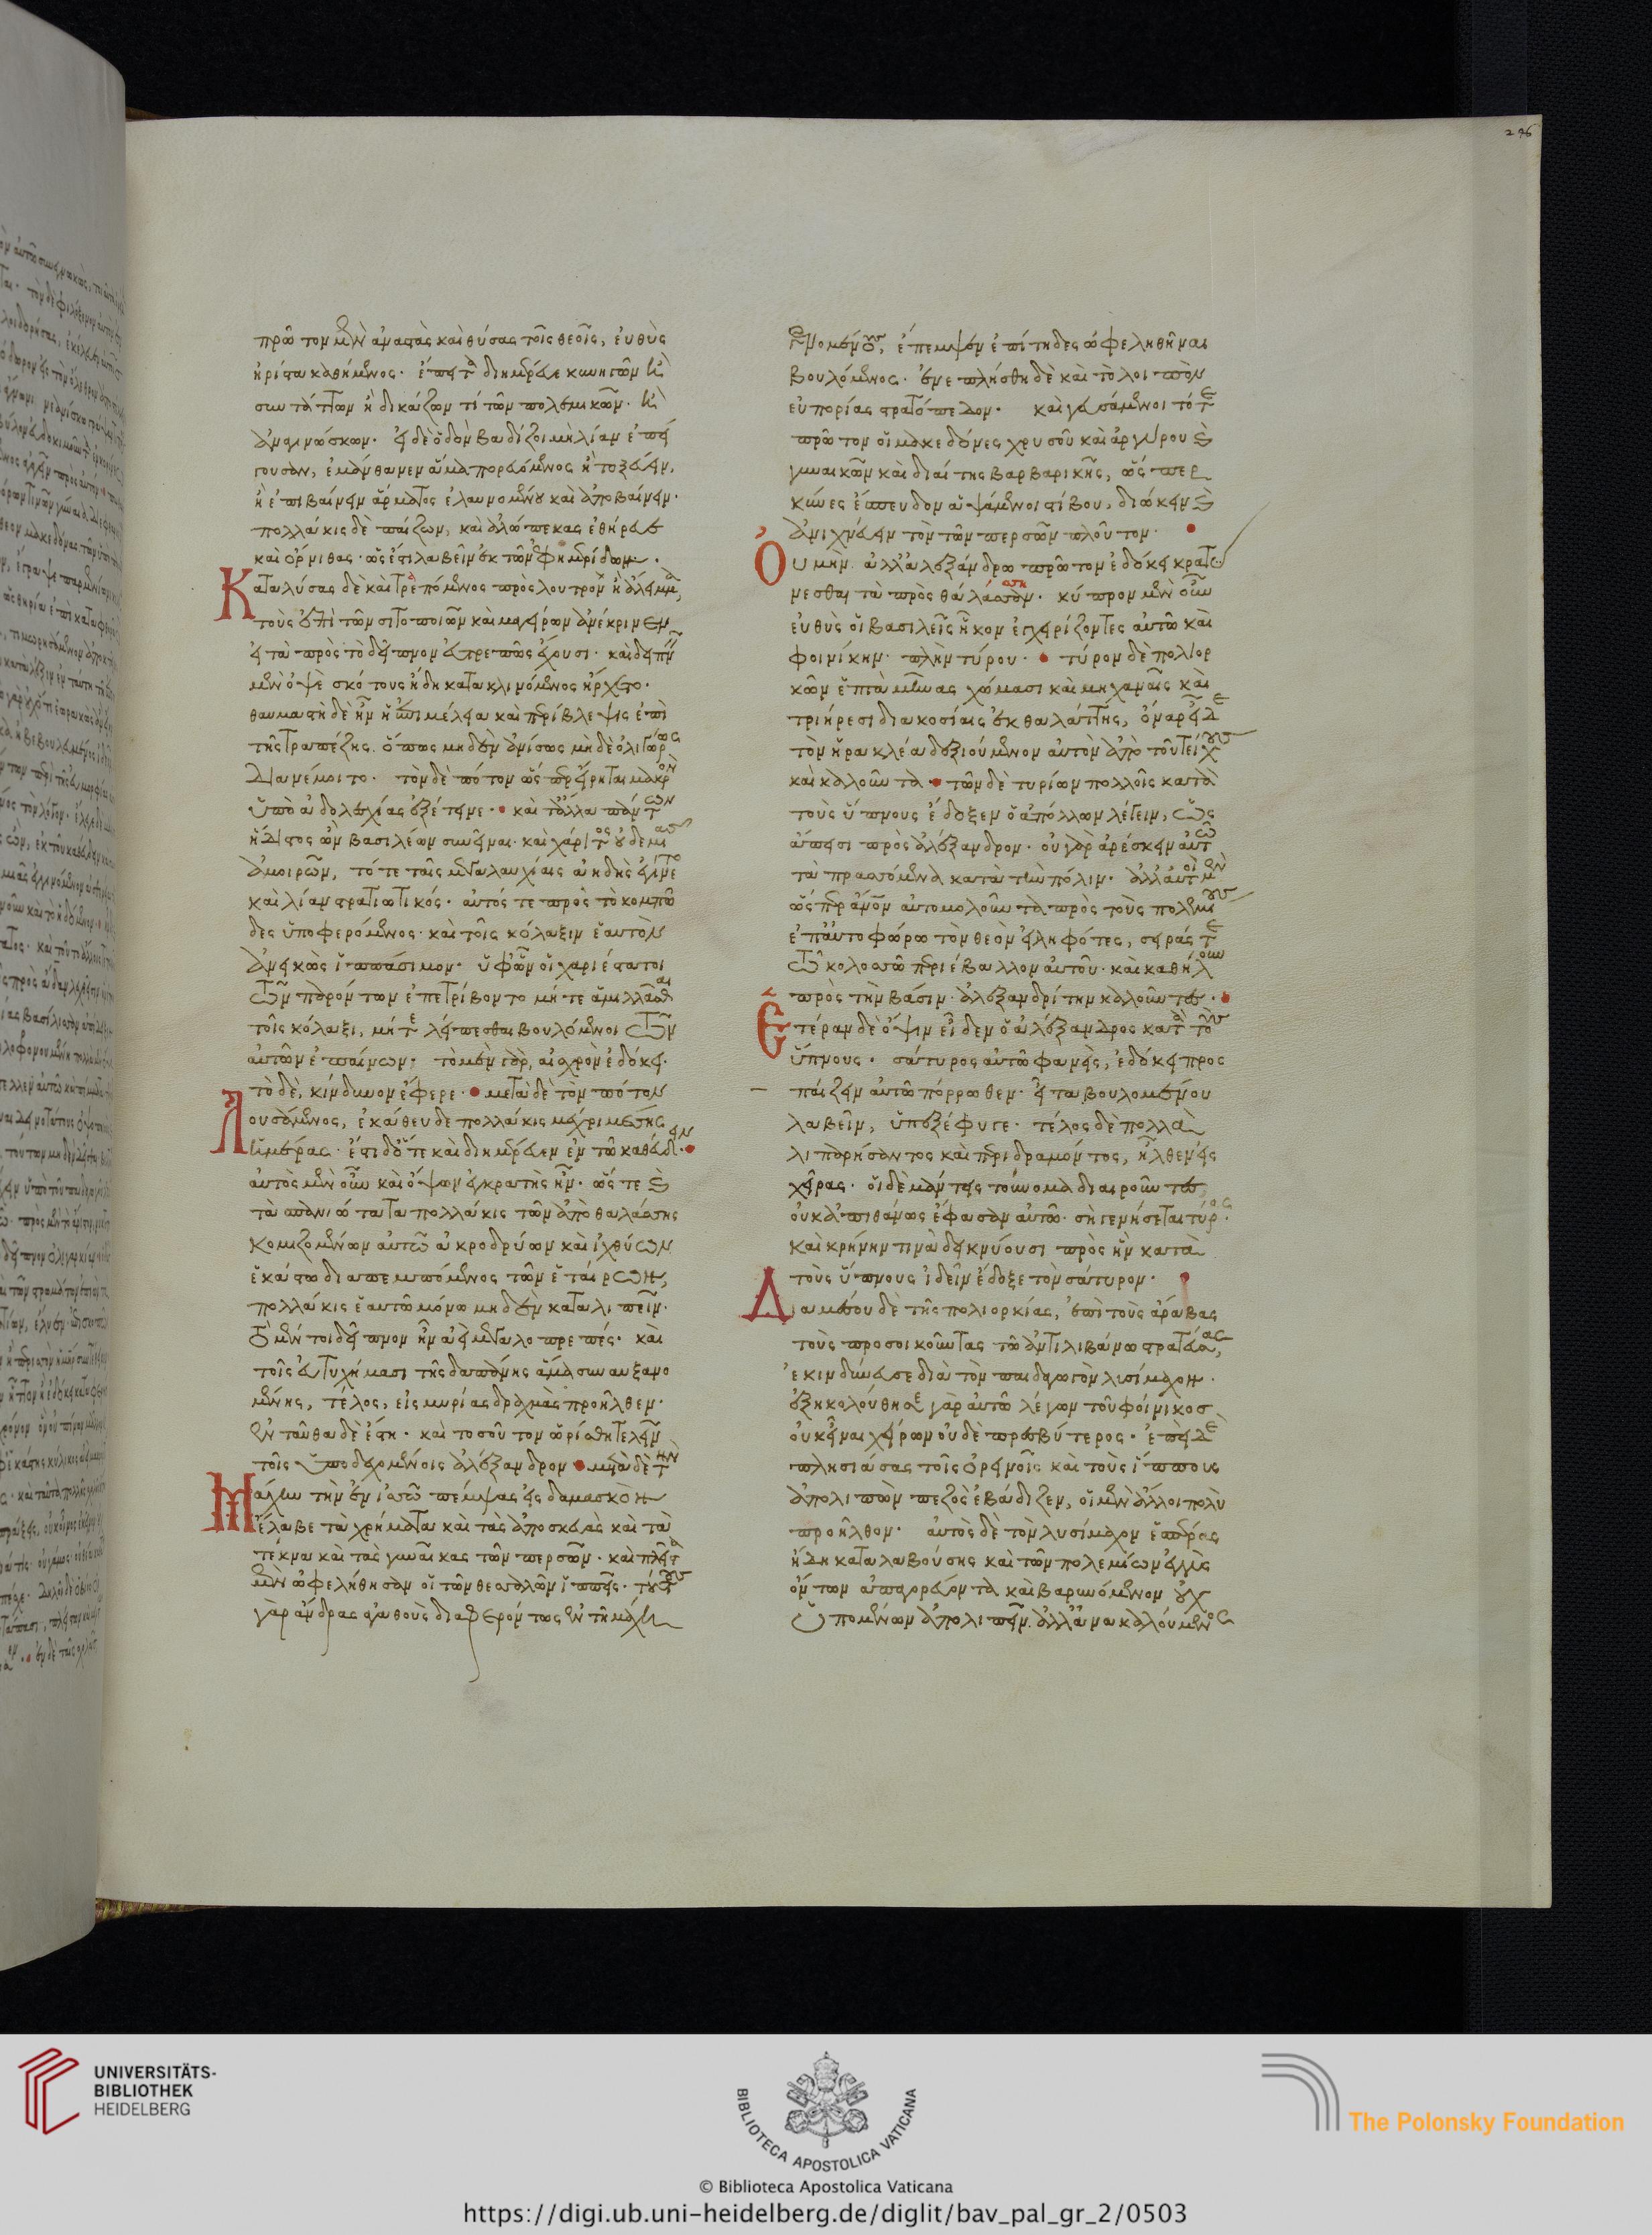 πρῶτον μὲν ἀναστὰς καὶ θύσας τοῖς θεοῖς, εὐθὺς
ἠρίστα καθήμενος· ἔπειτα διημέρευε κυνηγῶν ἢ
συντάττων ἢ δικάζων τί τῶν πολεμικῶν· ἢ
ἀναγινώσκων· εἰ δὲ ὁδὸν βαδίζοι μὴ λίαν ἐπεί
γουσαν, ἐμάνθανεν ἅμα πορευόμενος ἢ τοξεύειν,
ἢ ἐπιβαίνειν ἅρματος ἐλαυνομένου καὶ ἀποβαίνειν·
πολλάκις δὲ παίζων, καὶ ἀλώπεκας ἐθήρευε
καὶ ὄρνιθας· ὡς ἔστι λαβεῖν ἐκ τῶν ἐφημερίδων·
Καταλύσας δὲ καὶ τρεπόμενος πρὸς λουτρὸν ἢ ἄλειμμα,
τοὺς ἐπὶ τῶν σιτοποιῶν καὶ μαγείρων ἀνέκρινεν
εἰ τὰ πρὸς τὸ δεῖπνον εὐτρεπῶς ἔχουσι· καὶ δειπνεῖν
μὲν ὀψὲ σκότους ἤδη κατακλινόμενος ἤρχετο·
θαυμαστὴ δὲ ἦν ἡ ἐπιμέλεια καὶ περίβλεψις ἐπὶ
τῆς τραπέζης. ὅπως μηδὲν ἀνίσως μὴ δὲ ὀλιγώρως
διανέμοιτο· τὸν δὲ πότον ὥσπερ εἴρηται μακρὸν
ὑπὸ ἀδολεσχίας ἐξέτεινε· καὶ τἆλλα πάντων
ἥδιστος ὢν βασιλέων συνεῖναι· καὶ χάριτος οὐδεμιᾶς
ἀμοιρῶν, τότε ταῖς μεγαλαυχίαις ἀηδὴς ἐγίνετο
καὶ λίαν στρατιωτικός· αὐτός τε πρὸς τὸ κομπῶ
δες ὑποφερόμενος· καὶ τοῖς κόλαξιν ἑαυτὸν
ἀνεικὼς ἱππάσιμον· ὑφ ὧν οἱ χαριέστατοι
τῶν παρόντων ἐπετρίβοντο μήτε ἁμιλλᾶσθαι
τοῖς κόλαξι, μήτε λείπεσθαι βουλόμενοι τῶν
αὐτῶν ἐπαίνων· τὸ μὲν γὰρ, αἰσχρὸν ἐδόκει·
τὸ δὲ, κίνδυνον ἔφερε· μετὰ δὲ τὸν πότον
λουσάμενος, ἐκάθευδε πολλάκις μέχρι μέσης
ἡμέρας· ἔστι δ' ὅτε καὶ διημέρευεν ἐν τῶ καθεύδειν·
αὐτὸς μὲν οὖν καὶ ὄψων ἐγκρατὴς ἦν· ὥστε καὶ
τὰ σπανιώτατα πολλάκις τῶν ἀπὸ θαλάσσης
κομιζομένων αὐτῶ ἀκροδρύων καὶ ἰχθύων
ἑκάστω διαπεμπόμενος τῶν ἑταίρων,
πολλάκις ἑαυτῶ μόνω μηδὲν καταλιπεῖν·
τὸ μέντοι δεῖπνον ἦν ἀεὶ μεγαλοπρεπές· καὶ
τοῖς εὐτυχήμασι τῆς δαπάνης ἅμα συναυξανο
μένης, τέλος, εἰς μυρίας δραχμὰς προῆλθεν·
ἐνταῦθα δὲ ἔστη· καὶ τοσοῦτον ὡρίσθη τελεῖν
τοῖς ὑποδεχομένοις ἀλέξανδρον· μετὰ δὲ τὴν
Μάχην τὴν ἐν ἰσσῶ πέμψας εἰς δαμασκὸν
ἔλαβε τὰ χρήματα καὶ τὰς ἀποσκευὰς καὶ τὰ
τέκνα καὶ τὰς γυναῖκας τῶν περσῶν· καὶ πλεῖστα
μὲν ὠφελήθησαν οἱ τῶν θεσσαλῶν ἱππεῖς· τούτους
γὰρ ἄνδρας ἀγαθοὺς διαφερόντως ἐν τῆ μάχη
γενομένους, ἔπεμψεν ἐπίτηδες ὠφεληθῆναι
βουλόμενος· ἐνεπλήσθη δὲ καὶ τὸ λοιπὸν
εὐπορίας στρατόπεδον· καὶ γευσάμενοι τότε
πρῶτον οἱ μακεδόνες χρυσοῦ καὶ ἀργύρου καὶ
γυναικῶν καὶ διαίτης βαρβαρικῆς, ὥσπερ
κύνες ἔσπευδον ἁψάμενοι στίβου, διώκειν καὶ
ἀνιχνεύειν τὸν τῶν περσῶν πλοῦτον·
Οὐ μὴν ἀλλ' ἀλεξάνδρω πρῶτον ἐδόκει κρατύ
νεσθαι τὰ πρὸς θάλάσση· κύπρον μὲν οὖν
εὐθὺς οἱ βασιλεῖς ἧκον ἐγχειρίζοντες αὐτῶ καὶ
φοινίκην· πλὴν τύρου· τύρον δὲ πολιορ
κῶν ἑπτὰ μῆνας χώμασι καὶ μηχαναῖς καὶ
τριήρεσι διακοσίαις ἐκ θαλάττης, ὄναρ εἶδε
τὸν ἡρακλέα δεξιούμενον αὐτὸν ἀπὸ τοῦ τείχους
καὶ καλοῦντα· τῶν δὲ τυρίων πολλοῖς κατὰ
τοὺς ὕπνους ἔδοξεν ὁ ἀπόλλων λέγειν, ὡς
ἄπεισι πρὸς ἀλέξανδρον· οὐ γὰρ ἀρέσκειν αὐτῶ
τὰ πρασσόμενα κατὰ τὴν πόλιν· ἀλλ' αὐτοὶ μὲν
ὥσπερ ἄνθρωπον αὐτομολοῦντα πρὸς τοὺς πολεμίους
ἐπ' αὐτοφώρω τὸν θεὸν εἰληφότες, σειράς τε
τῶ κολοσσῶ περιέβαλλον αὐτοῦ· καὶ καθήλουν
πρὸς τὴν βάσιν· ἀλεξανδρίτην καλοῦντες·
Ἑτέραν δὲ ὄψιν εἶδεν ὁ ἀλέξανδρος κατὰ τοὺς
ὕπνους· σάτυρος αὐτῶ φανεὶς, ἐδόκει προς
παίζειν αὐτῶ πόρρωθεν· εἶτα βουλομένου
λαβεῖν, ὑπεξέφυγε· τέλος δὲ πολλὰ
λιπαρήσαντος καὶ περιδραμόντος, ἦλθεν εἰς
χεῖρας· οἱ δὲ μάντεις τοὔνομα διαιροῦντες,
οὐκ ἀπιθάνως ἔφασαν αὐτῶ· σὴ γενήσεται τύρος·
καὶ κρήνην τινὰ δεικνύουσι πρὸς ἣν κατὰ
τοὺς ὕπνους ἰδεῖν ἔδοξε τὸν σάτυρον·
Διαμέσου δὲ τῆς πολιορκίας, ἐπὶ τοὺς ἄραβας
τοὺς προσοικοῦντας τῶ ἀντιλιβάνω στρατεύσας,
ἐκινδύνευσε διὰ τὸν παιδαγωγὸν λυσίμαχον·
ἐξηκολούθησε γὰρ αὐτῶ λέγων τοῦ φοίνικος
οὐκ εἶναι χείρων οὐδὲ πρεσβύτερος· ἐπεὶ δὲ
πλησιάσας τοῖς ὀρεινοῖς καὶ τοὺς ἵππους
ἀπολιπὼν πεζὸς ἐβάδιζεν, οἱ μὲν ἄλλοι πολὺ
προῆλθον· αὐτὸς δὲ τὸν λυσίμαχον ἑσπέρας
ἤδη καταλαβούσης καὶ τῶν πολεμίων ἐγγὺς
ὄντων ἀπαγορεύοντα καὶ βαρυνόμενον οὐχ
ὑπομένων ἀπολιπεῖν. ἀλλ' ἀνακαλούμενος
UNIVERSITÄTS-
BIBLIOTHEK
HEIDELBERG
BIBLIOTECA APOSTOLICA VATICANA
The Polonsky Foundation
© Biblioteca Apostolica Vaticana
https://digi.ub.uni-heidelberg.de/diglit/bav_pal_gr_2/0503